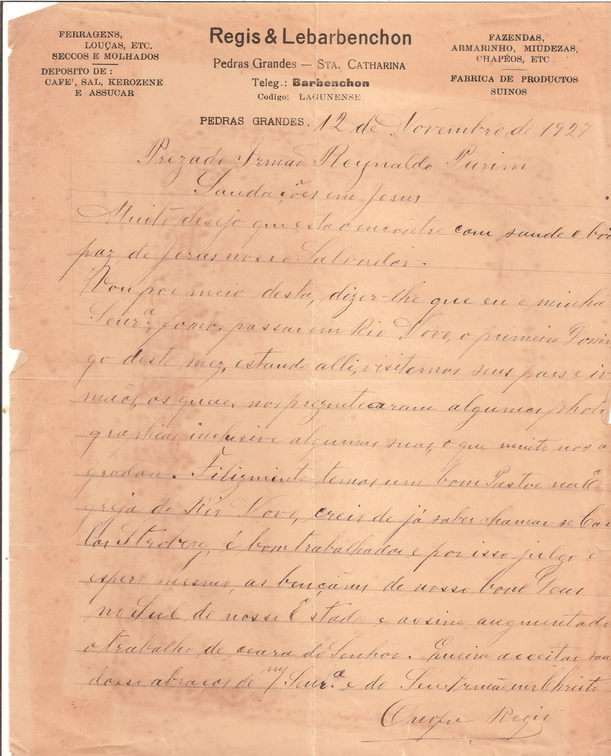 FERRAGENS,
LOUÇAS, ETC.
SECCOS E MOLHADOS
DEPOSITO DE :
CAFE', SAL, KEROZENE
E ASSUCAR
Regis & Lebarbenchon
Pedras Grandes — STA. CATHARINA
Teleg.: Barbenchon
Codigo: LAGUNENSE
FAZENDAS,
ARMARINHO, MIUDEZAS,
CHAPÉOS, ETC
FABRICA DE PRODUCTOS
SUINOS
PEDRAS GRANDES. 12 de Novembro de 1927
Prezado Irmão Reynaldo Purim
Saudações em Jesus
Muito desejo que esta o encontre com saude e boa
paz de Jesus nosso Salvador.
Vou por meio desta, dizer-lhe que eu e minha
Senrª. fomos passar em Rio Novo, o primeiro Domin
go deste mez, estando alli, visitemos seus paes e ir
mãos, os quaes nos algumas photo
graphias inclusive algumas suas, o que muito nos a
gradou. Filizmente temos um bom Pastor na E
greja do Rio Novo, creio de já saber chamar-se Car
los Stroberg, é bom trabalhador e por isso julgo e
espero mesmo, as bençãns de nosso bom Deus
no Sul de nosso Estado e assim augmentado
o trabalho de ceara do Senhor. Queira acceitar sau
dosos abraços de mª Senrª e do Seu Irmão em Christo
Regis